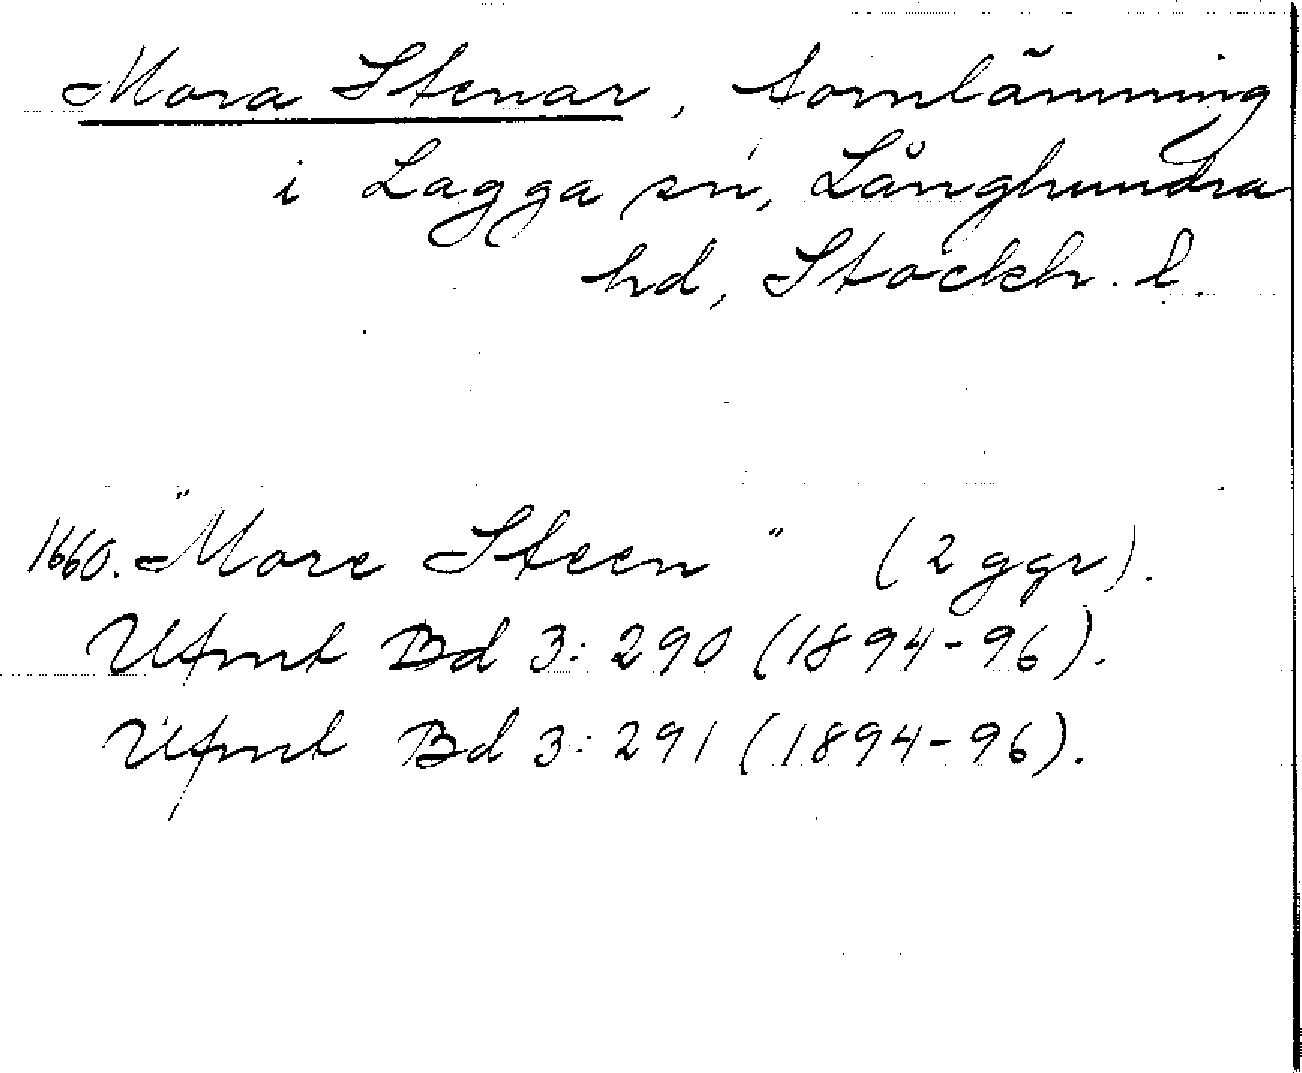 Mora Stenar, fornlämning
i Lagga sn, Långhundra
hd, Stockh. l.
1660. "More Steen" (2 ggr).
Ufmt Bd 3: 290 (1894-96).
Ufmt Bd 3: 291 (1894-96).